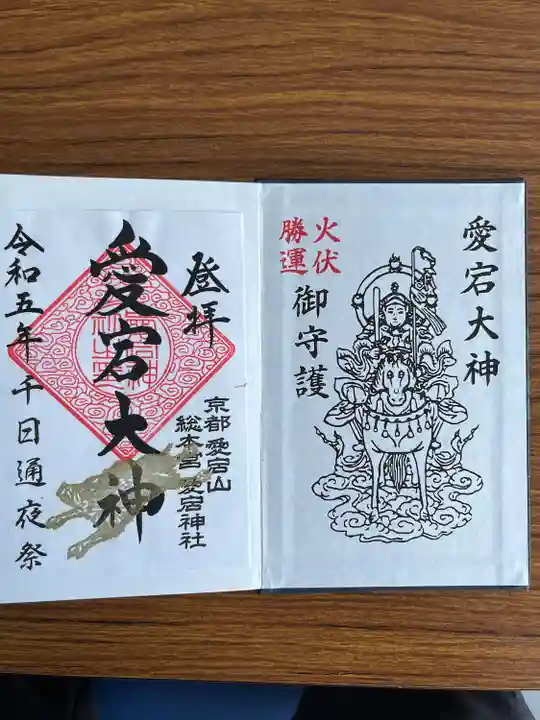 愛宕大神
火伏
勝運
御守護
登拝
愛宕大神
京都 愛宕山
総本宮 愛宕神社
令和五年千日通夜祭